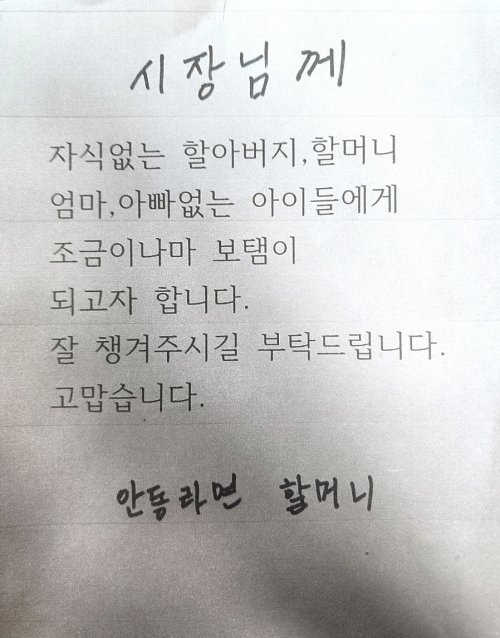 시장님께
자식없는 할아버지,할머니
엄마,아빠없는 아이들에게
조금이나마 보탬이
되고자 합니다.
잘 챙겨주시길 부탁드립니다.
고맙습니다.
안동라면 할머니